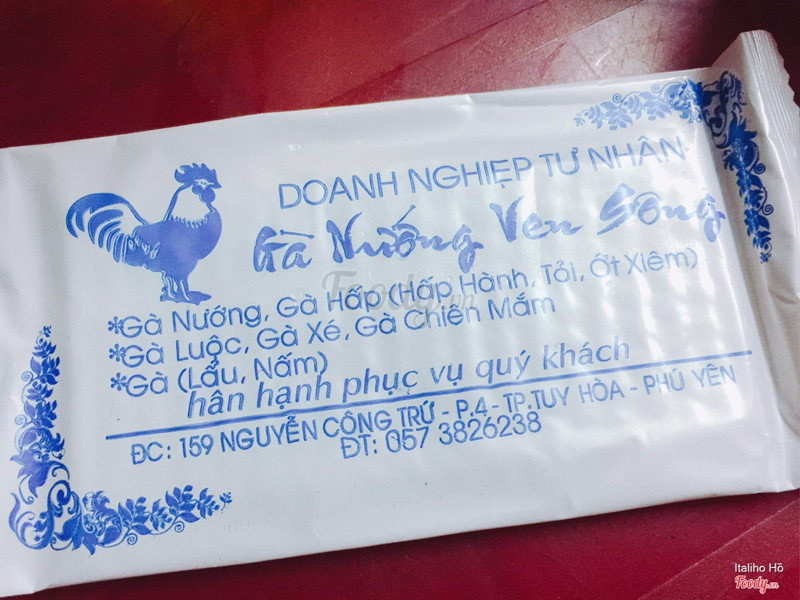 DOANH NGHIỆP TƯ NHÂN
Gà Nướng Ven Sông
*Gà Nướng, Gà Hấp (Hấp Hành, Tỏi, Ớt Xiêm)
*Gà Luộc, Gà Xé, Gà Chiên Mắm
*Gà (Lẩu, Nấm)
hân hạnh phục vụ quý khách
ĐC: 159 NGUYỄN CÔNG TRỨ - P.4 - TP.TUY HÒA - PHÚ YÊN
ĐT: 057 3826238
Foody.vn
Italiho Hồ
Foody.vn